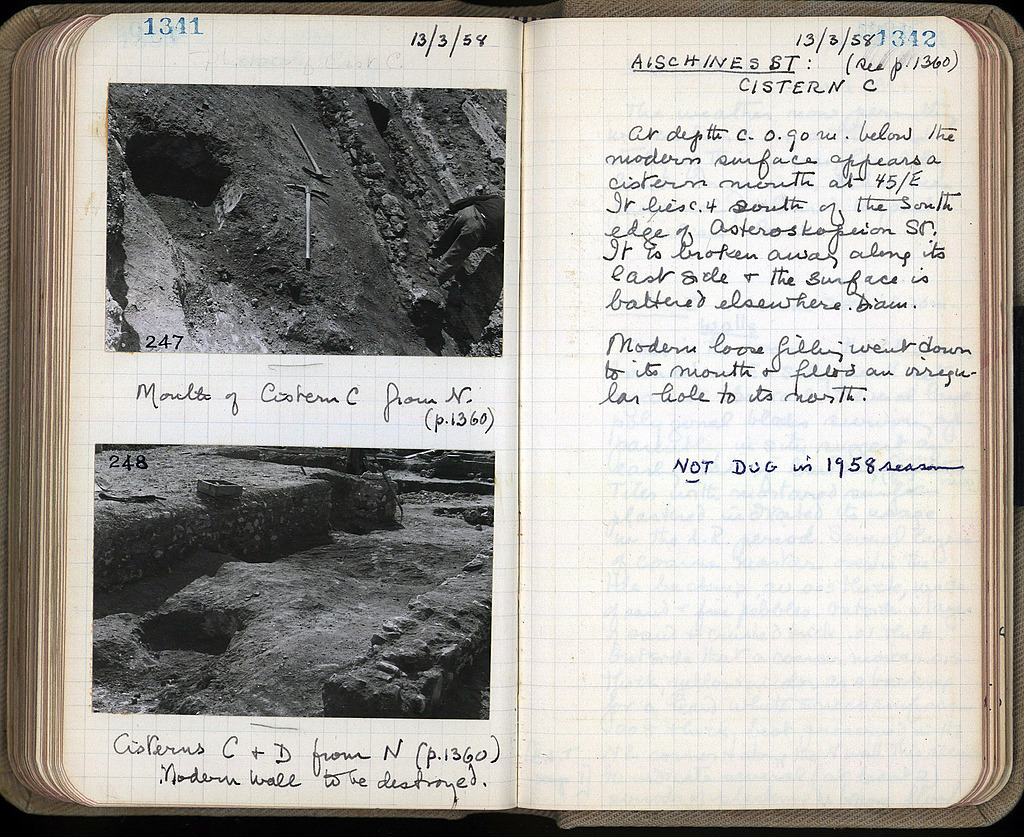 1341
13/3/58
247
Mouth of Cistern C from N.
(p.1360)
248
Cisterns C + D from N (p.1360)
Modern wall to be destroyed.
13/3/58 1342
AISCHINES ST: (see p.1360)
CISTERN C
At depth c. 0.90 m. below the
modern surface appears a
cistern mouth at 45/E
It lies c. 4 south of the South
edge of Asteroskopeion St.
It is broken away along its
East side + the surface is
battered elsewhere. Diam.
Modern loose filling went down
to its mouth + filled an irregu-
lar hole to its north.
NOT DUG in 1958 season